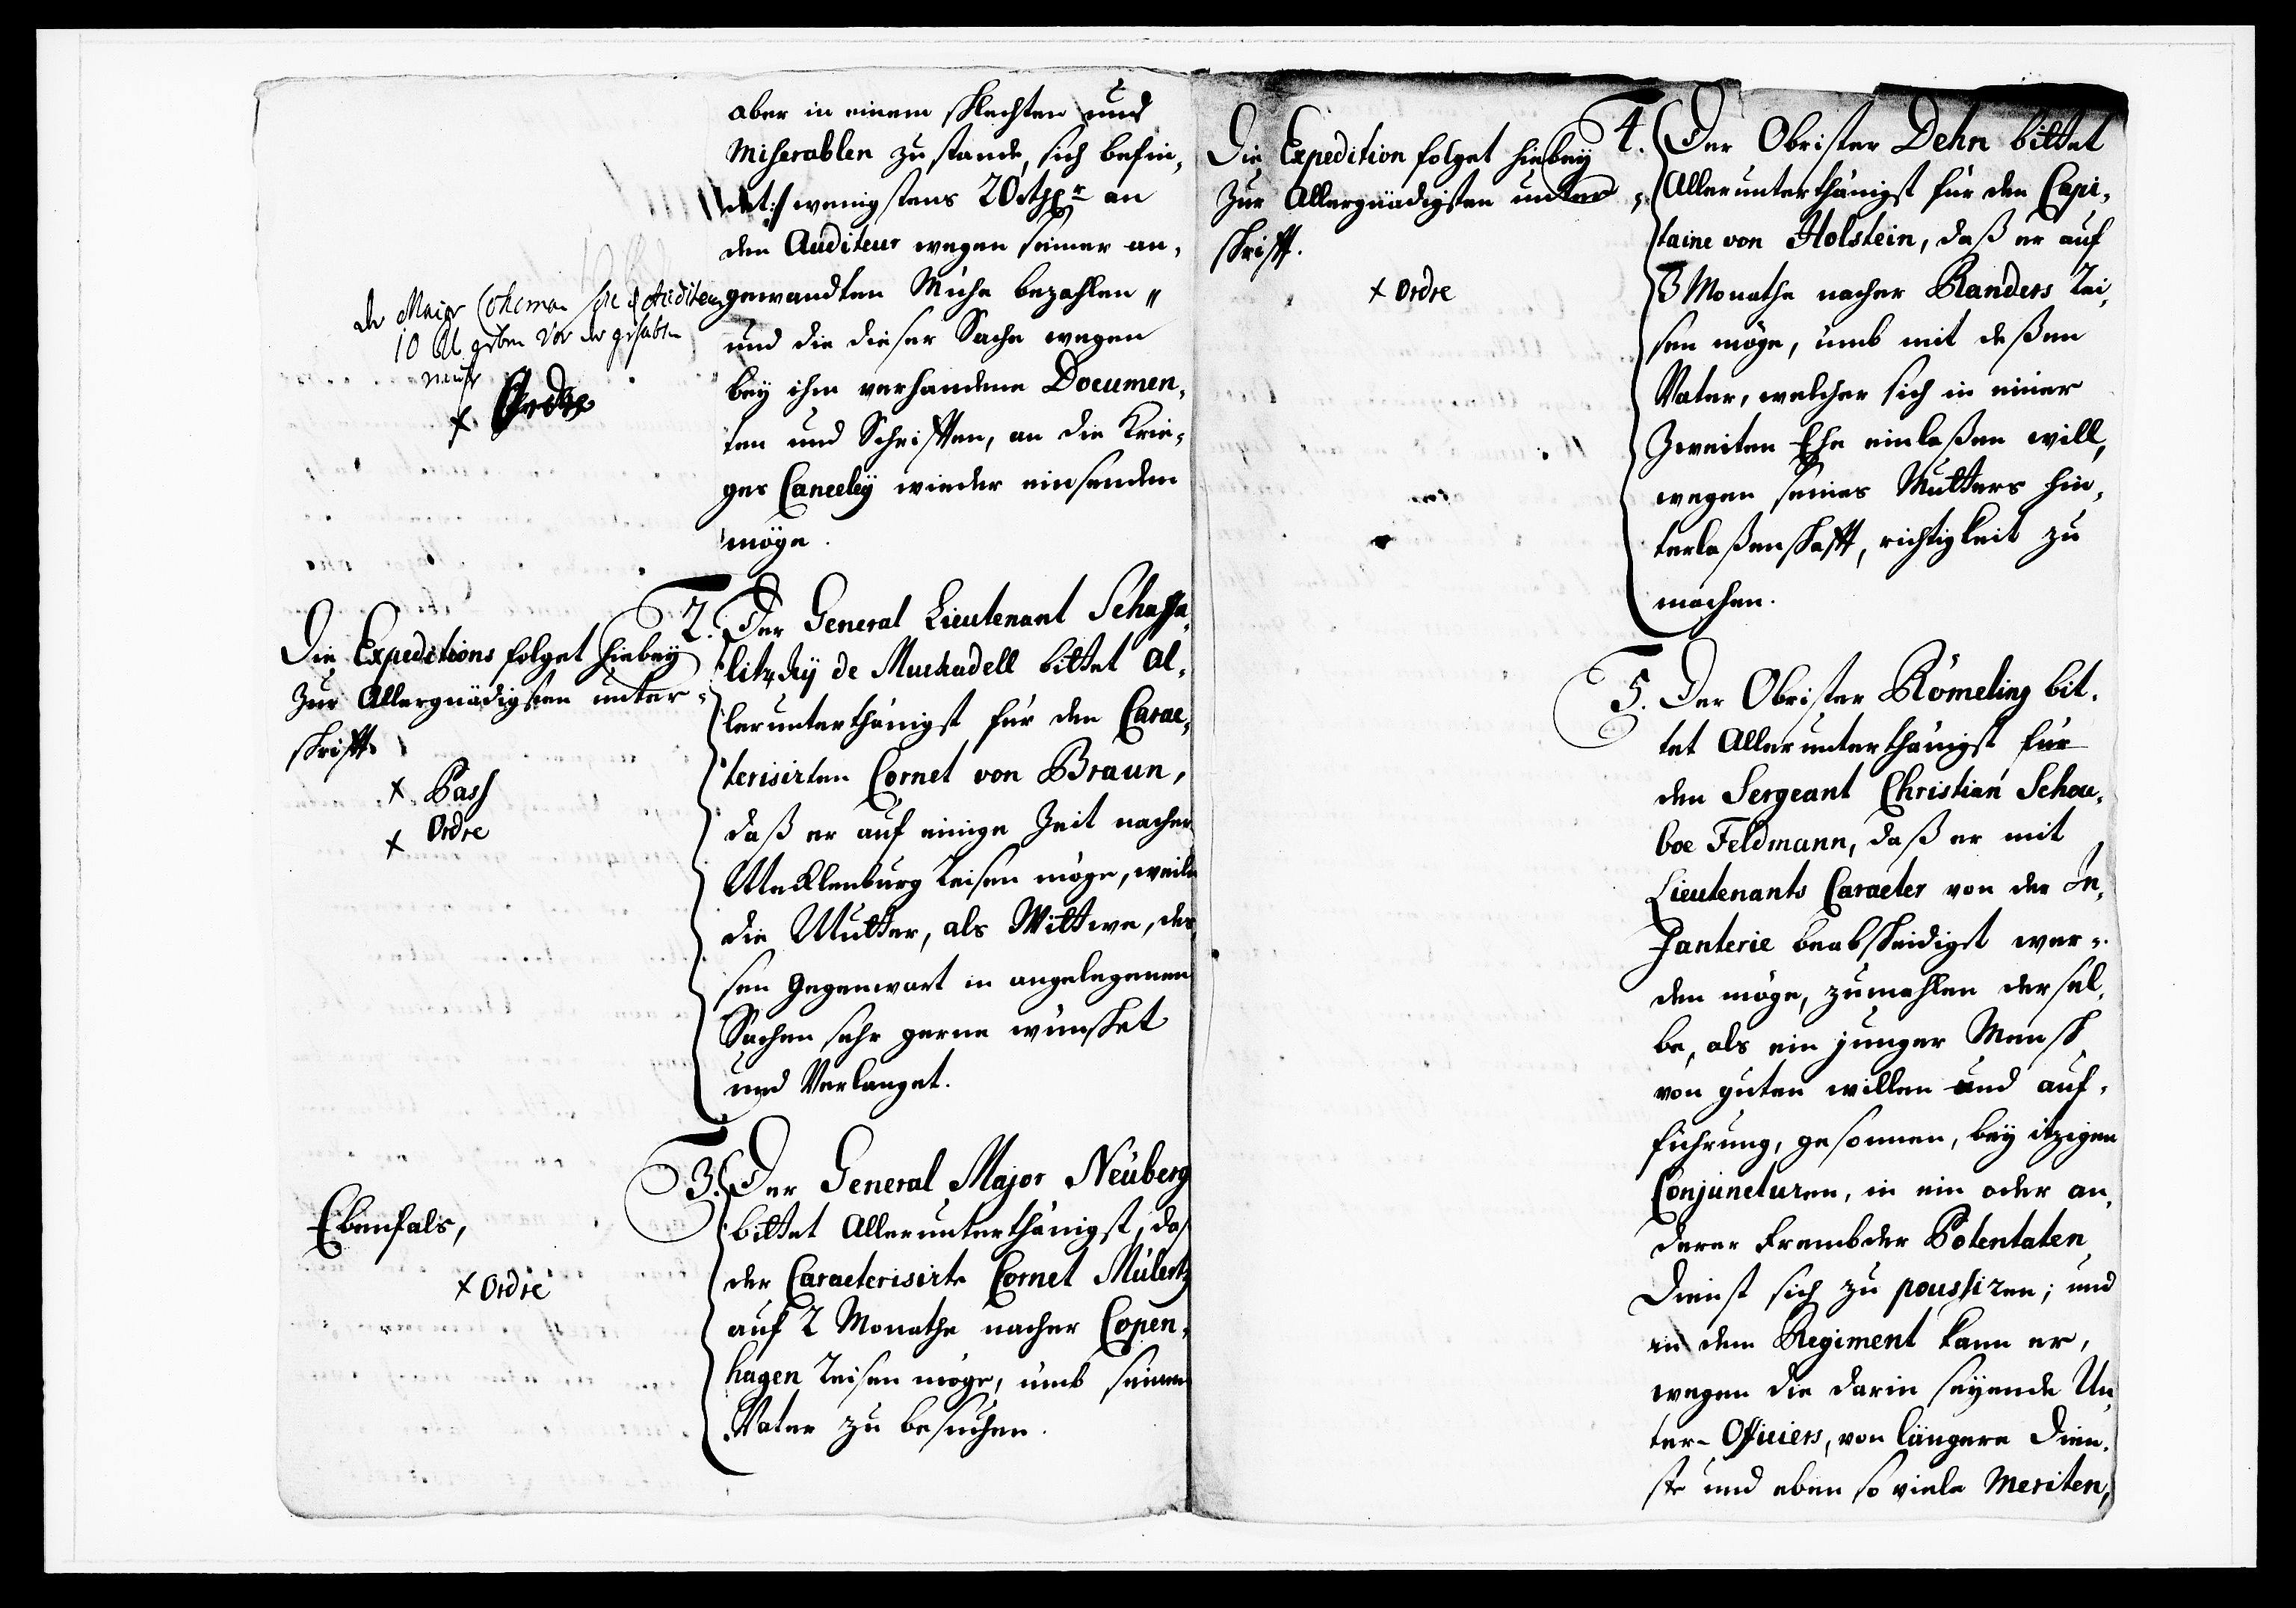 aber in einem schlechten und
Miserablen zustande, sich befin,
det:/ wenigstens 20 rthlr an
den Auditeur wegen seiner an,
gewandten Mühe bezahlen,,
und die dieser Sache wegen
bey ihm verhandene Documen,
ten und Schrifften, an die Krie,
ges Canceley wieder einsenden
möge.
der Major sol Auditeur
10 geben vor der gehabten
x Ordre
2. Der General Lieutenant Schaffa,
litzky de Muckadell bittet al,
lerunterthänigst für den Carac,
terisirten Cornet von Braun,
daß er auf einige Zeit nacher
Mecklenburg reisen möge, weiln
die Mutter, als Wittwe, des,
sen Gegenwart in angelegenen
Sachen sehr gerne wünschet
und Verlanget.
Die Expeditions folget hiebey
Zur Allergnädigsten unter,
schrifft.
x Pass
x Ordre
3. Der General Major Neüberg
bittet Allerunterthänigst, das
der Caracterisirte Cornet Mülertz
auf 2 Monathe nacher Copen,
hagen reisen möge, umb seinen
Vater zu besuchen.
Ebenfals,
x Ordre
Die Expedition folget hiebey
Zur Allergnädigsten unter,
schrifft.
x Ordre
4. Der Obrister Dehn bittet
Allerunterthänigst für den Capi,
taine von Holstein, daß er auf
3 Monathe nacher Randers rei,
sen möge, umb mit deßen
Vater, welcher sich in einer
Zweiten Ehe einlaßen will,
wegen seines Mutters hin,
terlaßenschafft, richtigkeit zu
machen.
5. Der Obrister Römeling bit,
tet Allerunterthänigst für
den Sergeant Christian Schou,
boe Feldmann, daß er mit
Lieutenants Caracter von der In,
fanterie beabscheidiget wer,
den möge, zumahlen dersel,
be, als ein junger Mensch
von guten willen und auf,
führung, gesonnen, bey itzigen
Conjuncturen, in ein oder an,
derer frembder Potentaten
Dienst sich zu poussiren; und
in dem Regiment kann er,
wegen die darin seyende Un,
ter-Officiers, von längere Dien,
ste und eben so viele Meriten,